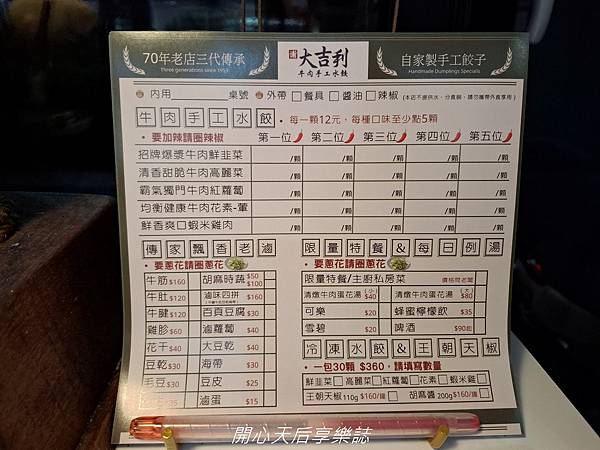 70年老店三代傳承
Three generations since 1953
大吉利
牛肉手工水餃
自家製手工餃子
Handmade Dumplings Specials
內用 桌號 外帶 □餐具 □醬油 □辣椒
牛肉手工水餃 ・每一顆12元，每種口味至少點5顆
・要加辣請圈辣椒 第一位 第二位 第三位 第四位 第五位
招牌爆漿牛肉鮮韭菜 /顆 /顆 /顆 /顆 /顆
清香甜脆牛肉高麗菜 /顆 /顆 /顆 /顆 /顆
霸氣獨門牛肉紅蘿蔔 /顆 /顆 /顆 /顆 /顆
均衡健康牛肉花素-葷 /顆 /顆 /顆 /顆 /顆
鮮香爽口蝦米雞肉 /顆 /顆 /顆 /顆 /顆
傳家飄香老滷
・要蔥花請圈蔥花
牛筋 $160 胡麻時蔬 $50 $100
牛肚 $120 滷味四拼 $160
牛腱 $120 百頁豆腐 $30
雞胗 $60 滷蘿蔔 $40
花干 $40 大豆乾 $40
豆乾 $30 海帶 $30
毛豆 $30 豆皮 $25
滷蛋 $15
限量特餐&每日例湯
・要蔥花請圈蔥花
限量特餐/主廚私房菜 價格問老闆
清燉牛肉蛋花湯 (小) $40 清燉牛肉蛋花湯 (大) $80
可樂 $20 蜂蜜檸檬飲 $35
雪碧 $20 啤酒 $90起
冷凍水餃&王朝天椒
・一包30顆 $360，請填寫數量
鮮韭菜□ 高麗菜□ 紅蘿蔔□ 花素□ 蝦米雞□
王朝天椒 110g $160/罐 胡麻醬 200g $160/罐
開心天后享樂誌